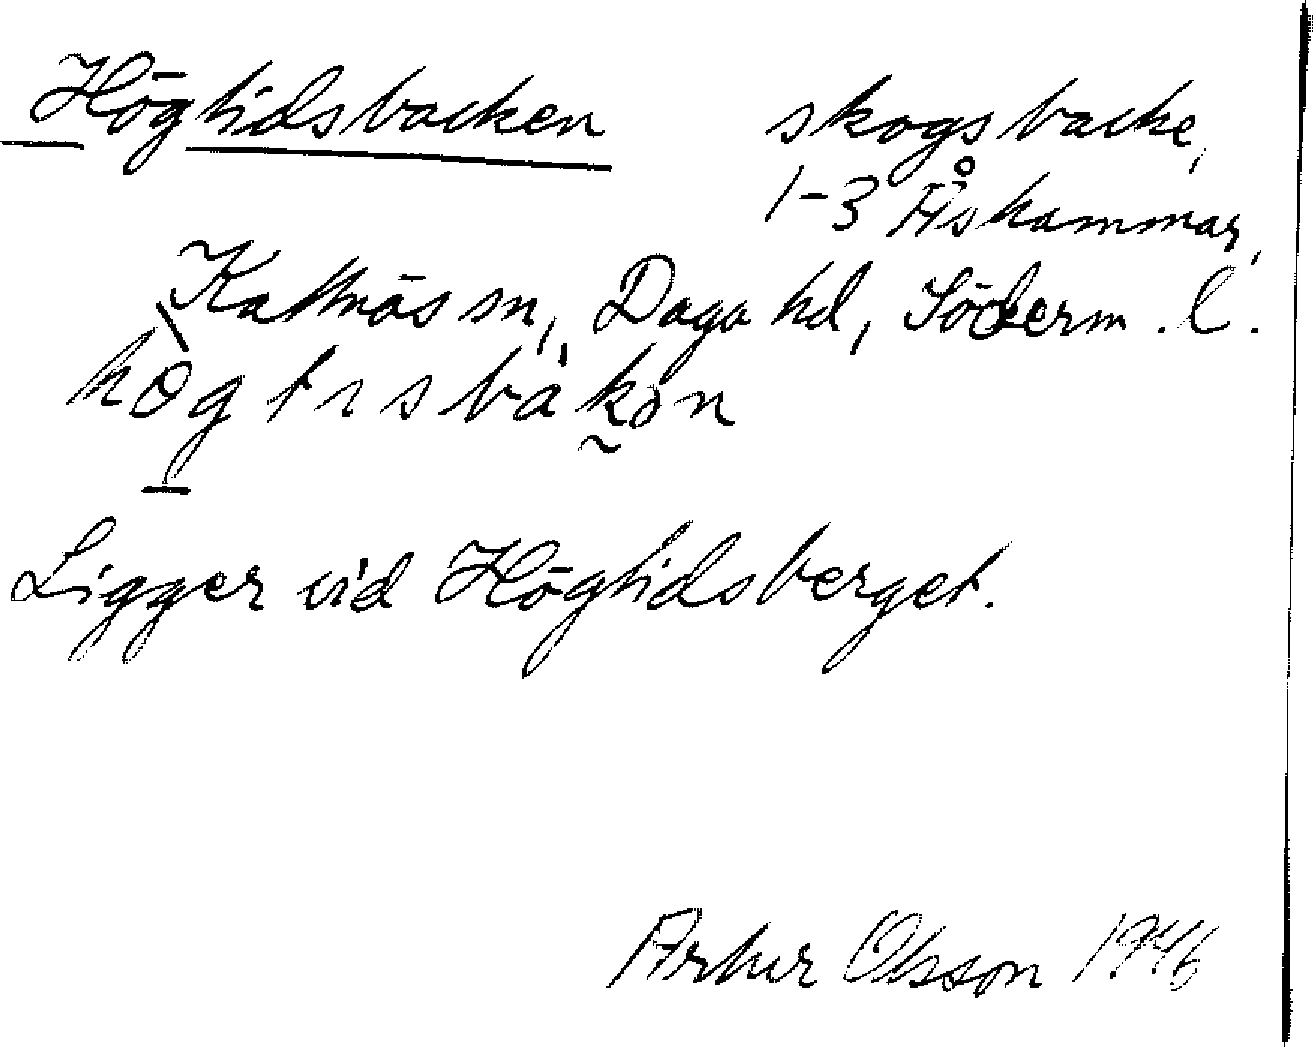 Högtidsbacken skogsbacke,
1-3 Åskammar,
Kattnäs sn, Daga hd, Söderm. l.
Ligger vid Högtidsberget.
Artur Olsson 1946